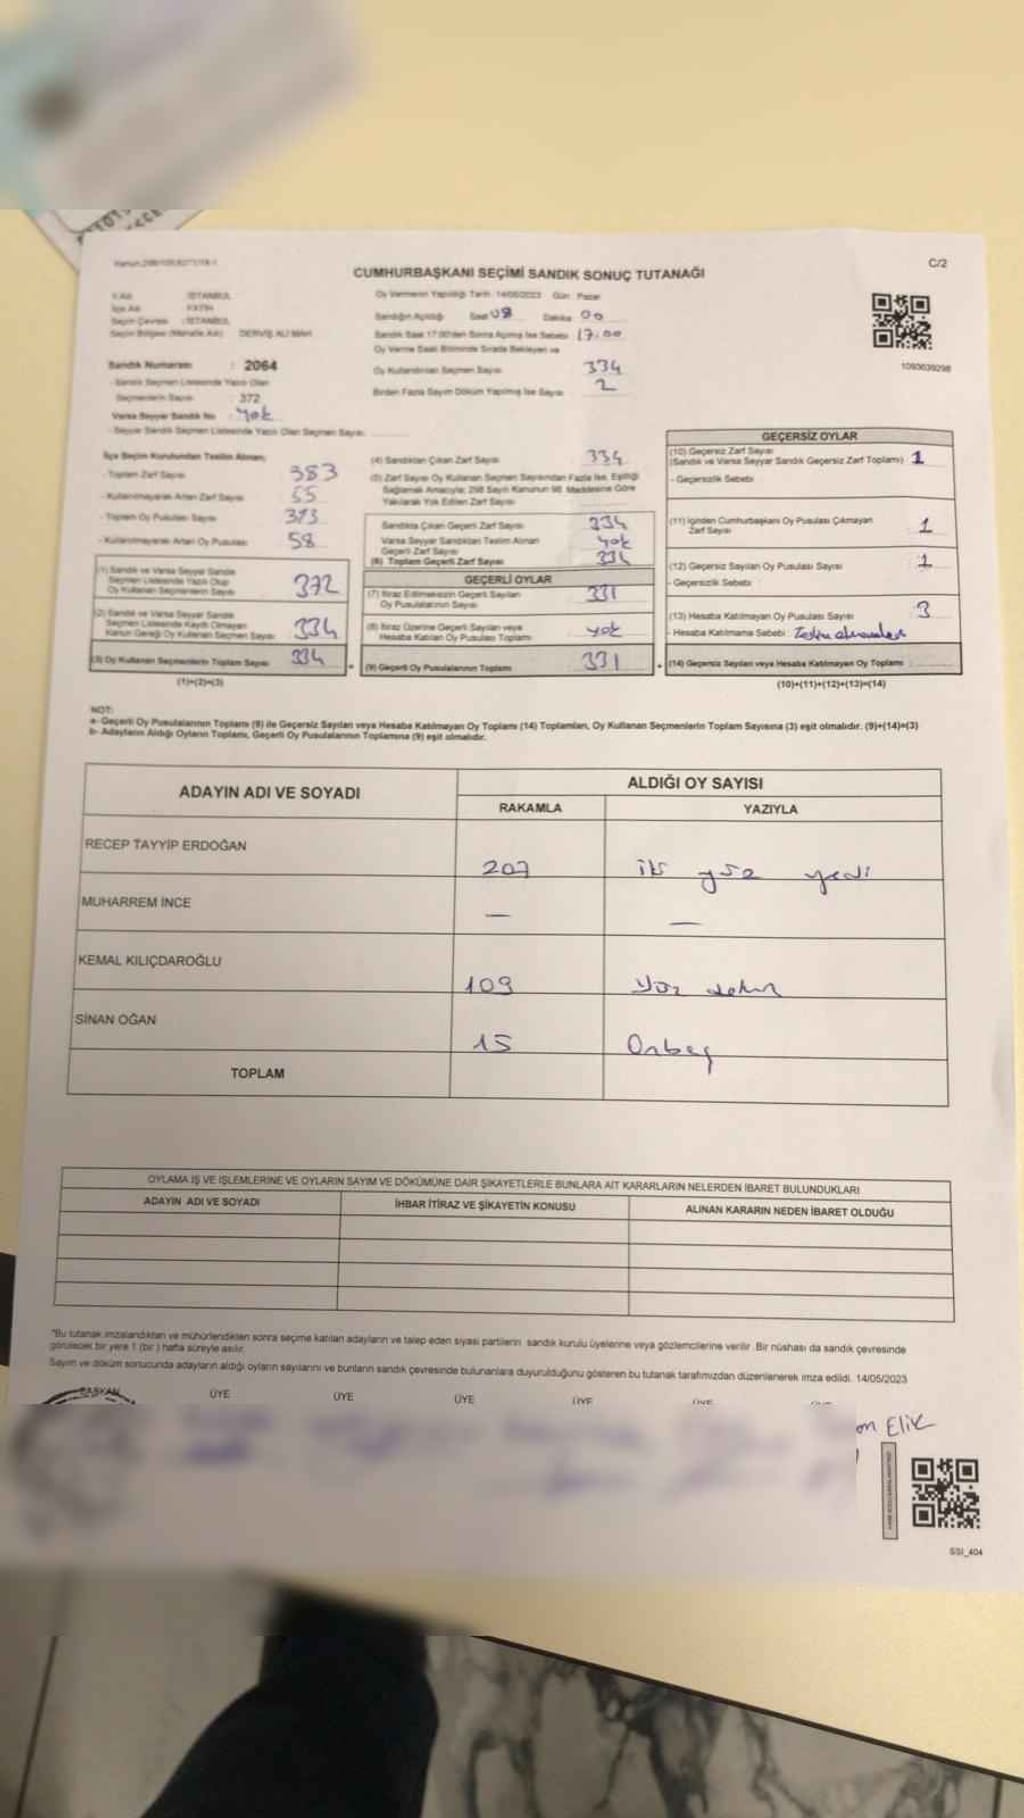 CUMHURBAŞKANI SEÇİMİ SANDIK SONUÇ TUTANAĞI
C/2
İli Adı : İSTANBUL
İlçe Adı : FATİH
Seçim Çevresi : İSTANBUL
DERVİŞ ALİ MAH
Oy Vermenin Yapıldığı Tarih: 14/05/2023 Gün: Pazar
Sandığın Açıldığı Saat 08 Dakika 00
17:00
Oy Kullandırılan Seçmen Sayısı 334
Birden Fazla Sayım Döküm Yapılmış İse Sayısı 2
Sandık Numarası : 2064
- Sandık Seçmen Listesinde Yazılı Olan
Seçmenlerin Sayısı : 372
Varsa Seyyar Sandık No : yok
- Seyyar Sandık Seçmen Listesinde Yazılı Olan Seçmen Sayısı
İlçe Seçim Kurulundan Teslim Alınan;
- Toplam Zarf Sayısı 383
- Kullanılmayarak Artan Zarf Sayısı 55
- Toplam Oy Pusulası Sayısı 393
- Kullanılmayarak Artan Oy Pusulası 58
(1) Sandık ve Varsa Seyyar Sandık
Seçmen Listesinde Yazılı Olup
Oy Kullanan Seçmenlerin Sayısı 372
(2) Sandık ve Varsa Seyyar Sandık
Seçmen Listesinde Kayıtlı Olmayan
Kanun Gereği Oy Kullanan Seçmen Sayısı 334
(3) Oy Kullanan Seçmenlerin Toplam Sayısı 334
(1)+(2)=(3)
(4) Sandıktan Çıkan Zarf Sayısı 334
(5) Zarf Sayısı Oy Kullanan Seçmen Sayısından Fazla İse, Eşitliği
Sağlamak Amacıyla; 298 Sayılı Kanunun 98. Maddesine Göre
Yakılarak Yok Edilen Zarf Sayısı
Sandıkta Çıkan Geçerli Zarf Sayısı 334
Varsa Seyyar Sandıktan Teslim Alınan
Geçerli Zarf Sayısı yok
(6) Toplam Geçerli Zarf Sayısı 334
GEÇERLİ OYLAR
(7) İtiraz Edilmeksizin Geçerli Sayılan
Oy Pusulalarının Sayısı 331
(8) İtiraz Üzerine Geçerli Sayılan veya
Hesaba Katılan Oy Pusulası Toplamı yok
(9) Geçerli Oy Pusulalarının Toplamı 331
1093039298
GEÇERSİZ OYLAR
(10) Geçersiz Zarf Sayısı
(Sandık ve Varsa Seyyar Sandık Geçersiz Zarf Toplamı) 1
- Geçersizlik Sebebi
(11) İçinden Cumhurbaşkanı Oy Pusulası Çıkmayan
Zarf Sayısı 1
(12) Geçersiz Sayılan Oy Pusulası Sayısı 1
- Geçersizlik Sebebi
(13) Hesaba Katılmayan Oy Pusulası Sayısı 3
- Hesaba Katılmama Sebebi
(14) Geçersiz Sayılan veya Hesaba Katılmayan Oy Toplamı
(10)+(11)+(12)+(13)=(14)
NOT:
a- Geçerli Oy Pusulalarının Toplamı (9) ile Geçersiz Sayılan veya Hesaba Katılmayan Oy Toplamı (14) Toplamları, Oy Kullanan Seçmenlerin Toplam Sayısına (3) eşit olmalıdır. (9)+(14)=(3)
b- Adayların Aldığı Oyların Toplamı, Geçerli Oy Pusulalarının Toplamına (9) eşit olmalıdır.
ADAYIN ADI VE SOYADI
ALDIĞI OY SAYISI
RAKAMLA YAZIYLA
RECEP TAYYİP ERDOĞAN 207 iki yüz yedi
MUHARREM İNCE — —
KEMAL KILIÇDAROĞLU 109 Yüz dokuz
SİNAN OĞAN 15 Onbeş
TOPLAM
OYLAMA İŞ VE İŞLEMLERİNE VE OYLARIN SAYIM VE DÖKÜMÜNE DAİR ŞİKAYETLERLE BUNLARA AİT KARARLARIN NELERDEN İBARET BULUNDUKLARI
ADAYIN ADI VE SOYADI İHBAR İTİRAZ VE ŞİKAYETİN KONUSU ALINAN KARARIN NEDEN İBARET OLDUĞU
"Bu tutanak imzalandıktan ve mühürlendikten sonra seçime katılan adayların ve talep eden siyasi partilerin sandık kurulu üyelerine veya gözlemcilerine verilir. Bir nüshası da sandık çevresinde
görülecek bir yere 1 (bir) hafta süreyle asılır.
Sayım ve döküm sonucunda adayların aldığı oyların sayılarını ve bunların sandık çevresinde bulunanlara duyurulduğunu gösteren bu tutanak tarafımızdan düzenlenerek imza edildi. 14/05/2023
BAŞKAN ÜYE ÜYE ÜYE ÜYE ÜYE
Elik
SSI_404